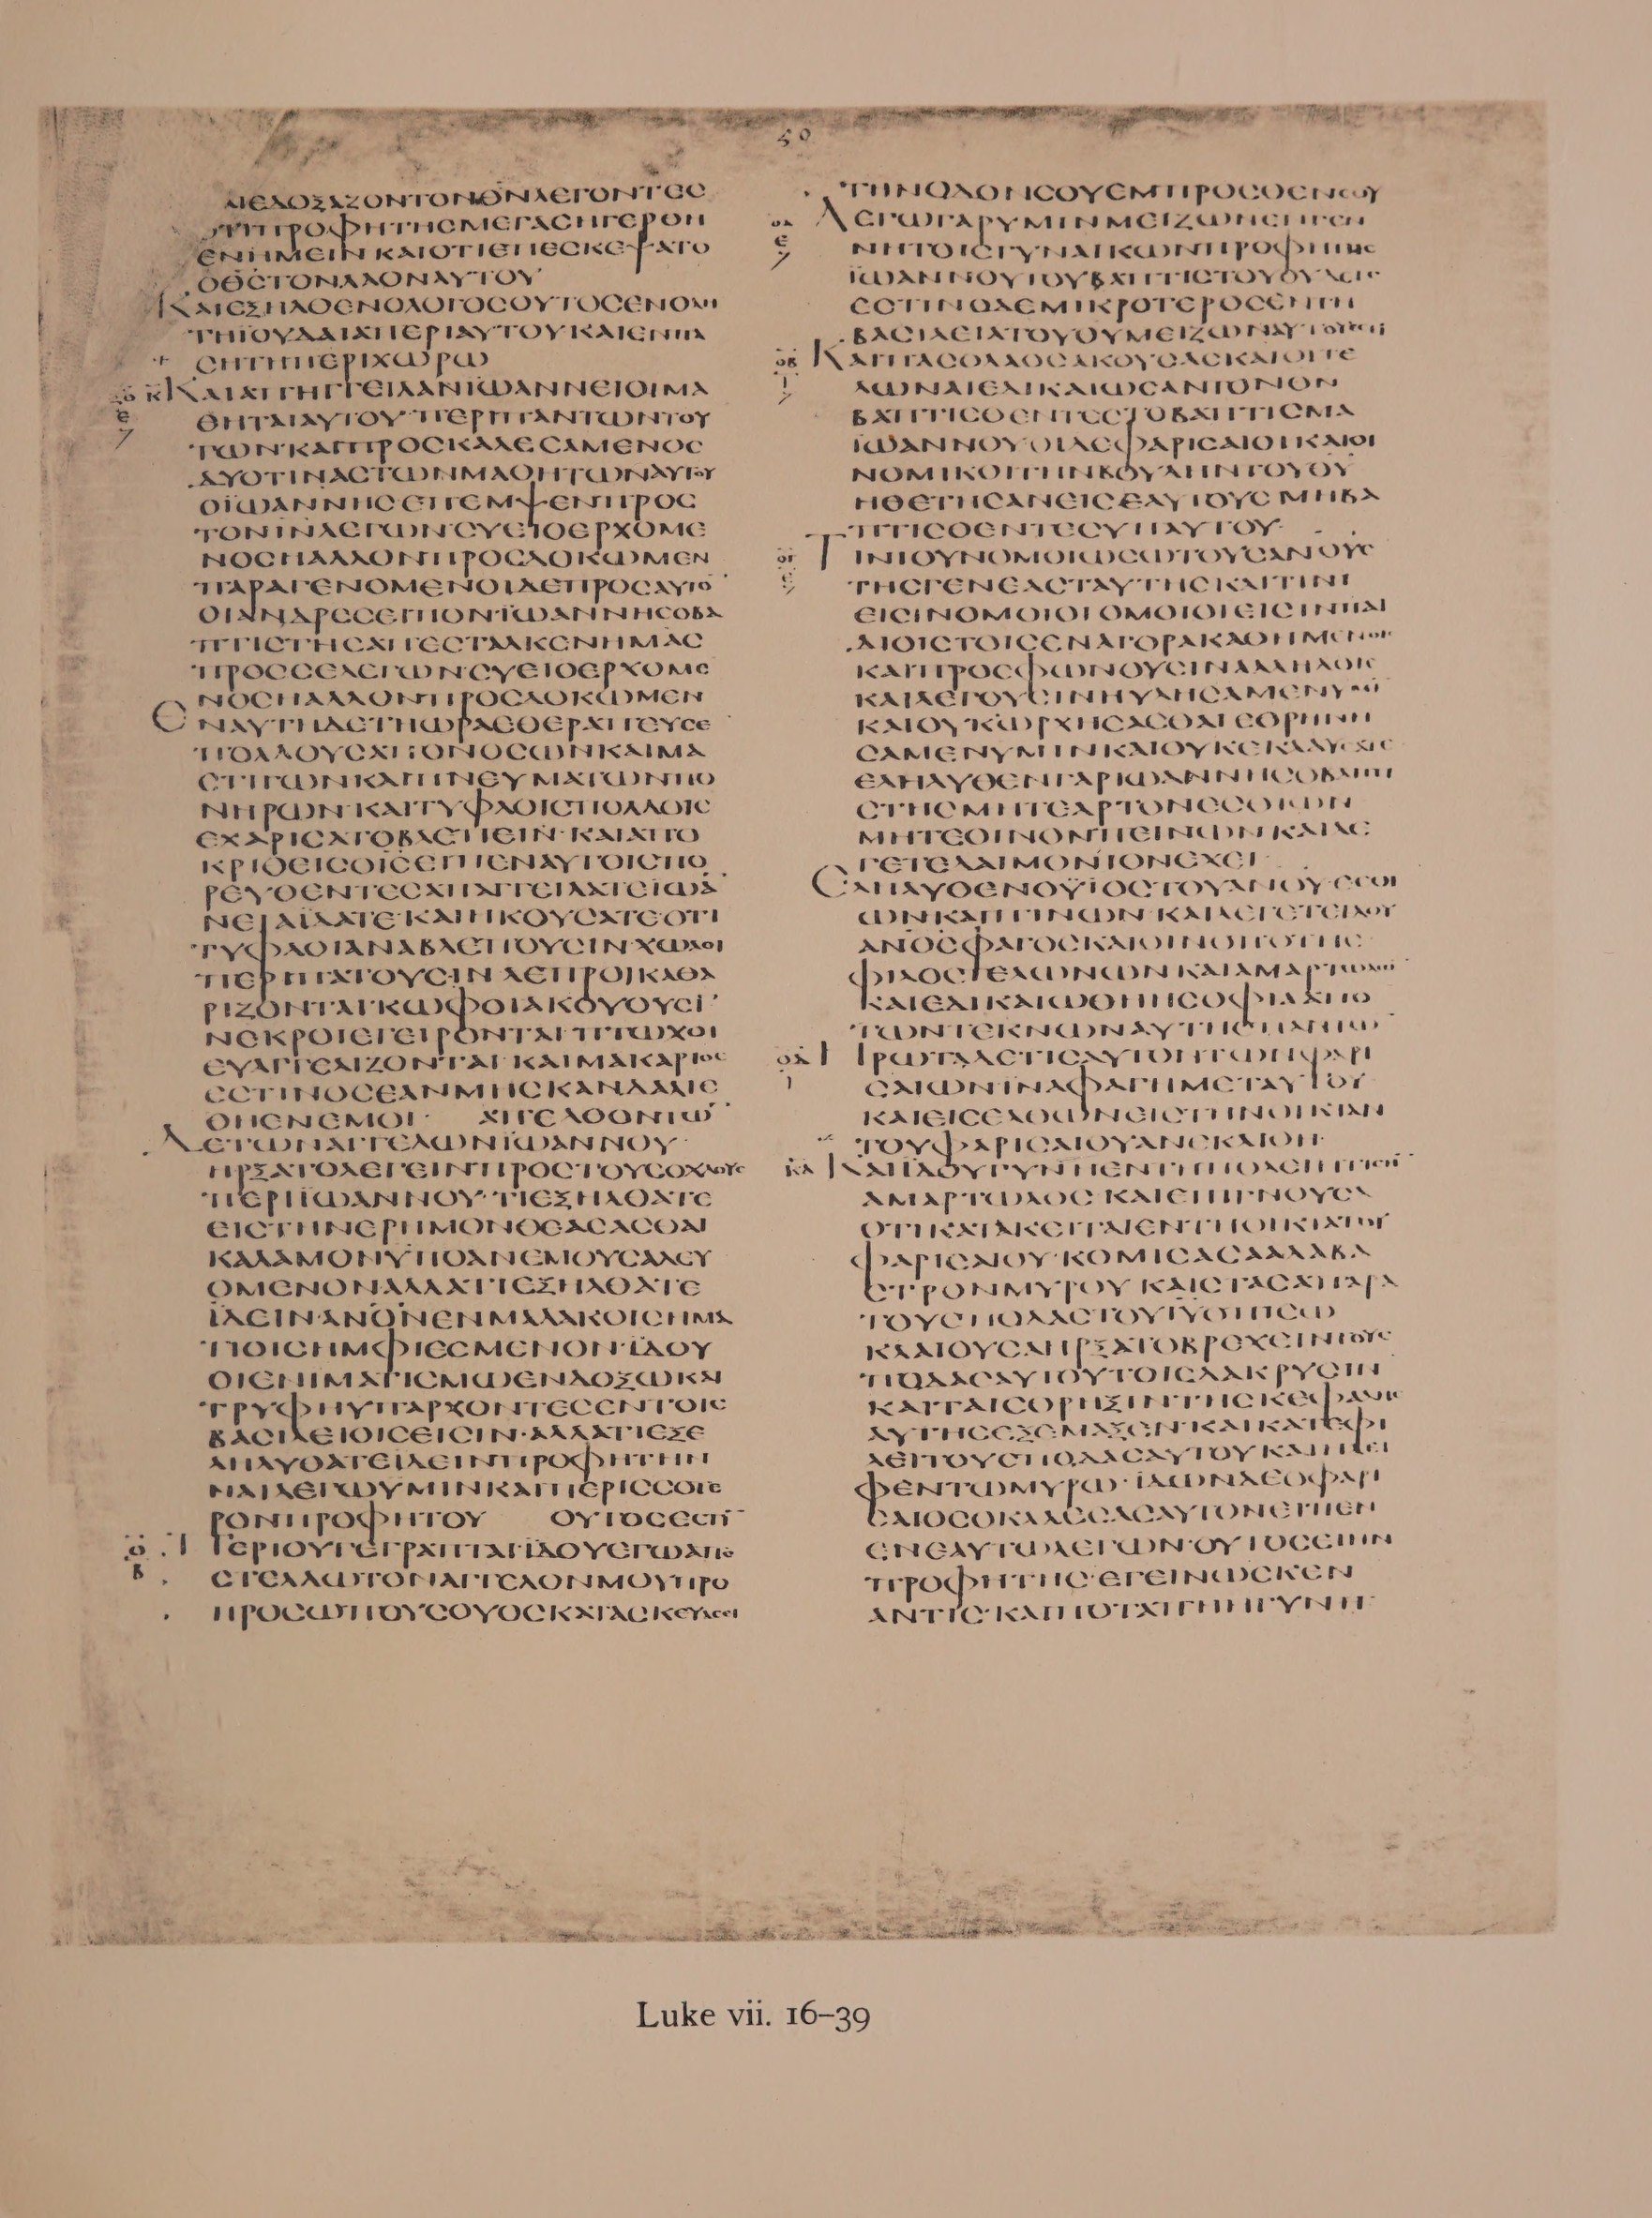 50
ΑΙΕΔΟΞΑΖΟΝΤΟΝΘΝΛΕΓΟΝΤΕϹ
ΟΤΙΠΡΟΦΗΤΗϹΜΕΓΑϹΗΓΕΡΘΗ
ΕΝΗΜΕΙΝΚΑΙΟΤΙΕΠΕϹΚΕΨΑΤΟ
ΟΘϹΤΟΝΛΑΟΝΑΥΤΟΥ
ΚΑΙΕΞΗΛΘΕΝΟΛΟΓΟϹΟΥΤΟϹΕΝΟΛΗ
ΤΗΪΟΥΔΑΙΑΠΕΡΙΑΥΤΟΥΚΑΙΕΝΠΑ
ϹΗΤΗΠΕΡΙΧΩΡΩ
ΚΑΙΑΠΗΓΓΕΙΛΑΝΪΩΑΝΝΕΙΟΙΜΑ
ΘΗΤΑΙΑΥΤΟΥ·ΠΕΡΙΠΑΝΤΩΝΤΟΥ
ΤΩΝ·ΚΑΙΠΡΟϹΚΑΛΕϹΑΜΕΝΟϹ
ΔΥΟΤΙΝΑϹΤΩΝΜΑΘΗΤΩΝΑΥΤΟΥ
ΟΪΩΑΝΝΗϹΕΠΕΜΨΕΝΠΡΟϹ
ΤΟΝΙΝΛΕΓΩΝϹΥΕΙΟΕΡΧΟΜΕ
ΝΟϹΗΑΛΛΟΝΠΡΟϹΔΟΚΩΜΕΝ
ΠΑΡΑΓΕΝΟΜΕΝΟΙΔΕΠΡΟϹΑΥΤΟ
ΟΙΑΝΔΡΕϹΕΙΠΟΝΪΩΑΝΝΗϹΟΒΑ
ΠΤΙϹΤΗϹΑΠΕϹΤΑΛΚΕΝΗΜΑϹ
ΠΡΟϹϹΕΛΕΓΩΝϹΥΕΙΟΕΡΧΟΜΕ
ΝΟϹΗΑΛΛΟΝΠΡΟϹΔΟΚΩΜΕΝ
ΕΝΑΥΤΗΔΕΤΗΩΡΑΕΘΕΡΑΠΕΥϹΕ
ΠΟΛΛΟΥϹΑΠΟΝΟϹΩΝΚΑΙΜΑ
ϹΤΙΓΩΝΚΑΙΠΝΕΥΜΑΤΩΝΠΟ
ΝΗΡΩΝ·ΚΑΙΤΥΦΛΟΙϹΠΟΛΛΟΙϹ
ΕΧΑΡΙϹΑΤΟΒΛΕΠΕΙΝ·ΚΑΙΑΠΟ
ΚΡΙΘΕΙϹΟΙϹΕΙΠΕΝΑΥΤΟΙϹΠΟ
ΡΕΥΘΕΝΤΕϹΑΠΑΓΓΕΙΛΑΤΕΪΩΑ
ΝΕΙΑΪΔΑΤΕ·ΚΑΙΗΚΟΥϹΑΤΕΟΤΙ
ΤΥΦΛΟΙΑΝΑΒΛΕΠΟΥϹΙΝ·ΧΩΛΟΙ
ΠΕΡΙΠΑΤΟΥϹΙΝΛΕΠΡΟΙΚΑΘΑ
ΡΙΖΟΝΤΑΙ·ΚΩΦΟΙΑΚΟΥΟΥϹΙ
ΝΕΚΡΟΙΕΓΕΙΡΟΝΤΑΙ·ΠΤΩΧΟΙ
ΕΥΑΓΓΕΛΙΖΟΝΤΑΙ·ΚΑΙΜΑΚΑΡΙΟϹ
ΕϹΤΙΝΟϹΕΑΝΜΗϹΚΑΝΔΑΛΙϹ
ΘΗΕΝΕΜΟΙ· ΑΠΕΛΘΟΝΤΩ
ΔΕΤΩΝΑΓΓΕΛΩΝΪΩΑΝΝΟΥ·
ΗΡΞΑΤΟΛΕΓΕΙΝΠΡΟϹΤΟΥϹΟΧΛΟΥϹ
ΠΕΡΙΪΩΑΝΝΟΥ·ΤΙΕΞΗΛΘΑΤΕ
ΕΙϹΤΗΝΕΡΗΜΟΝΘΕΑϹΑϹΘΑΙ
ΚΑΛΑΜΟΝΥΠΟΑΝΕΜΟΥϹΑΛΕΥ
ΟΜΕΝΟΝΑΛΛΑΤΙΕΞΗΛΘΑΤΕ
ΪΔΕΙΝ·ΑΝΟΝΕΝΜΑΛΑΚΟΙϹΗΜΑ
ΤΙΟΙϹΗΜΦΙΕϹΜΕΝΟΝ·ΪΔΟΥ
ΟΙΕΝΙΜΑΤΙϹΜΩΕΝΔΟΞΩΚΑΙ
ΤΡΥΦΗΥΠΑΡΧΟΝΤΕϹΕΝΤΟΙϹ
ΒΑϹΙΛΕΙΟΙϹΕΙϹΙΝ·ΑΛΛΑΤΙΕΞΕ
ΛΗΛΥΘΑΤΕΪΔΕΙΝΠΡΟΦΗΤΗΝ
ΝΑΙΛΕΓΩΥΜΙΝΚΑΙΠΕΡΙϹϹΟΤΕ
ΡΟΝΠΡΟΦΗΤΟΥ ΟΥΤΟϹΕϹΤΙ
ΠΕΡΙΟΥΓΕΓΡΑΠΤΑΙΪΔΟΥΕΓΩΑΠΟ
ϹΤΕΛΛΩΤΟΝΑΓΓΕΛΟΝΜΟΥΠΡΟ
ΠΡΟϹΩΠΟΥϹΟΥΟϹΚΑΤΑϹΚΕΥΑϹΕΙ
ΤΗΝΟΔΟΝϹΟΥΕΜΠΡΟϹΘΕΝϹΟΥ
ΛΕΓΩΓΑΡΥΜΙΝΜΕΙΖΩΝΕΝΓΕΝ
ΝΗΤΟΙϹΓΥΝΑΙΚΩΝΠΡΟΦΗΤΗϹ
ΪΩΑΝΝΟΥΤΟΥΒΑΠΤΙϹΤΟΥΟΥΔΕΙϹ
ΕϹΤΙΝΟΔΕΜΙΚΡΟΤΕΡΟϹΕΝΤΗ
ΒΑϹΙΛΕΙΑΤΟΥΘΥΜΕΙΖΩΝΑΥΤΟΥΕϹΤΙ
ΚΑΙΠΑϹΟΛΑΟϹΑΚΟΥϹΑϹΚΑΙΟΙΤΕ
ΛΩΝΑΙΕΔΙΚΑΙΩϹΑΝΤΟΝΘΝ
ΒΑΠΤΙϹΘΕΝΤΕϹΤΟΒΑΠΤΙϹΜΑ
ΪΩΑΝΝΟΥ·ΟΙΔΕΦΑΡΙϹΑΙΟΙΚΑΙΟΙ
ΝΟΜΙΚΟΙΤΗΝΒΟΥΛΗΝΤΟΥΘΥ
ΗΘΕΤΗϹΑΝΕΙϹΕΑΥΤΟΥϹΜΗΒΑ
ΠΤΙϹΘΕΝΤΕϹΥΠΑΥΤΟΥ·
ΤΙΝΙΟΥΝΟΜΟΙΩϹΩΤΟΥϹΑΝΟΥϹ
ΤΗϹΓΕΝΕΑϹΤΑΥΤΗϹΚΑΙΤΙΝΙ
ΕΙϹΙΝΟΜΟΙΟΙΟΜΟΙΟΙΕΙϹΙΝΠΑΙ
ΔΙΟΙϹΤΟΙϹΕΝΑΓΟΡΑΚΑΘΗΜΕΝΟΙϹ
ΚΑΙΠΡΟϹΦΩΝΟΥϹΙΝΑΛΛΗΛΟΙϹ
ΚΑΙΛΕΓΟΥϹΙΝΗΥΛΗϹΑΜΕΝΥΜΙ
ΚΑΙΟΥΚΩΡΧΗϹΑϹΘΑΙΕΘΡΗΝΗ
ϹΑΜΕΝΥΜΙΝΚΑΙΟΥΚΕΚΛΑΥϹΑΤΕ
ΕΛΗΛΥΘΕΝΓΑΡΙΩΑΝΝΗϹΟΒΑΠΤΙ
ϹΤΗϹΜΗΤΕΑΡΤΟΝΕϹΘΙΩΝ
ΜΗΤΕΟΙΝΟΝΠΕΙΝΩΝΚΑΙΛΕ
ΓΕΤΕΔΑΙΜΟΝΙΟΝΕΧΕΙ·
ΕΛΗΛΥΘΕΝΟΫΪΟϹΤΟΥΑΝΟΥΕϹΘΙ
ΩΝΚΑΙΠΙΝΩΝ·ΚΑΙΛΕΓΕΤΕΙΔΟΥ
ΑΝΟϹΦΑΓΟϹΚΑΙΟΙΝΟΠΟΤΗϹ·
ΦΙΛΟϹΤΕΛΩΝΩΝΚΑΙΑΜΑΡΤΩΛΩΝ
ΚΑΙΕΔΙΚΑΙΩΘΗΗϹΟΦΙΑΑΠΟ
ΤΩΝΤΕΚΝΩΝΑΥΤΗϹΠΑΝΤΩ
ΗΡΩΤΑΔΕΤΙϹΑΥΤΟΝΤΩΝΦΑΡΙ
ϹΑΙΩΝΪΝΑΦΑΓΗΜΕΤΑΥΤΟΥ·
ΚΑΙΕΙϹΕΛΘΩΝΕΙϹΤΗΝΟΙΚΙΑΝ
ΤΟΥΦΑΡΙϹΑΙΟΥΑΝΕΚΛΙΘΗ·
ΚΑΙΪΔΟΥΓΥΝΗΕΝΤΗΠΟΛΕΙΗΤΙϹΗ
ΑΜΑΡΤΩΛΟϹΚΑΙΕΠΙΓΝΟΥϹΑ
ΟΤΙΚΑΤΑΚΕΙΤΑΙΕΝΤΗΟΙΚΙΑΤΟΥ
ΦΑΡΙϹΑΙΟΥ·ΚΟΜΙϹΑϹΑΑΛΑΒΑ
ϹΤΡΟΝΜΥΡΟΥΚΑΙϹΤΑϹΑΠΑΡΑ
ΤΟΥϹΠΟΔΑϹΤΟΥΙΥΟΠΙϹΩ
ΚΛΑΙΟΥϹΑΗΡΞΑΤΟΒΡΕΧΕΙΝΤΟΥϹ
ΠΟΔΑϹΑΥΤΟΥΤΟΙϹΔΑΚΡΥϹΙΝ
ΚΑΙΤΑΙϹΘΡΙΞΙΝΤΗϹΚΕΦΑΛΗϹ
ΑΥΤΗϹΕΞΕΜΑΞΕΝ·ΚΑΙΚΑΤΕΦΙ
ΛΕΙΤΟΥϹΠΟΔΑϹΑΥΤΟΥΚΑΙΗΛΕΙ
ΦΕΝΤΩΜΥΡΩ·ΪΔΩΝΔΕΟΦΑΡΙ
ϹΑΙΟϹΟΚΑΛΕϹΑϹΑΥΤΟΝΕΙΠΕΝ
ΕΝΕΑΥΤΩΛΕΓΩΝ·ΟΥΤΟϹΕΙΗΝ
ΠΡΟΦΗΤΗϹ·ΕΓΕΙΝΩϹΚΕΝ
ΑΝΤΙϹ·ΚΑΙΠΟΤΑΠΗΗΓΥΝΗ·
Luke vii. 16–39